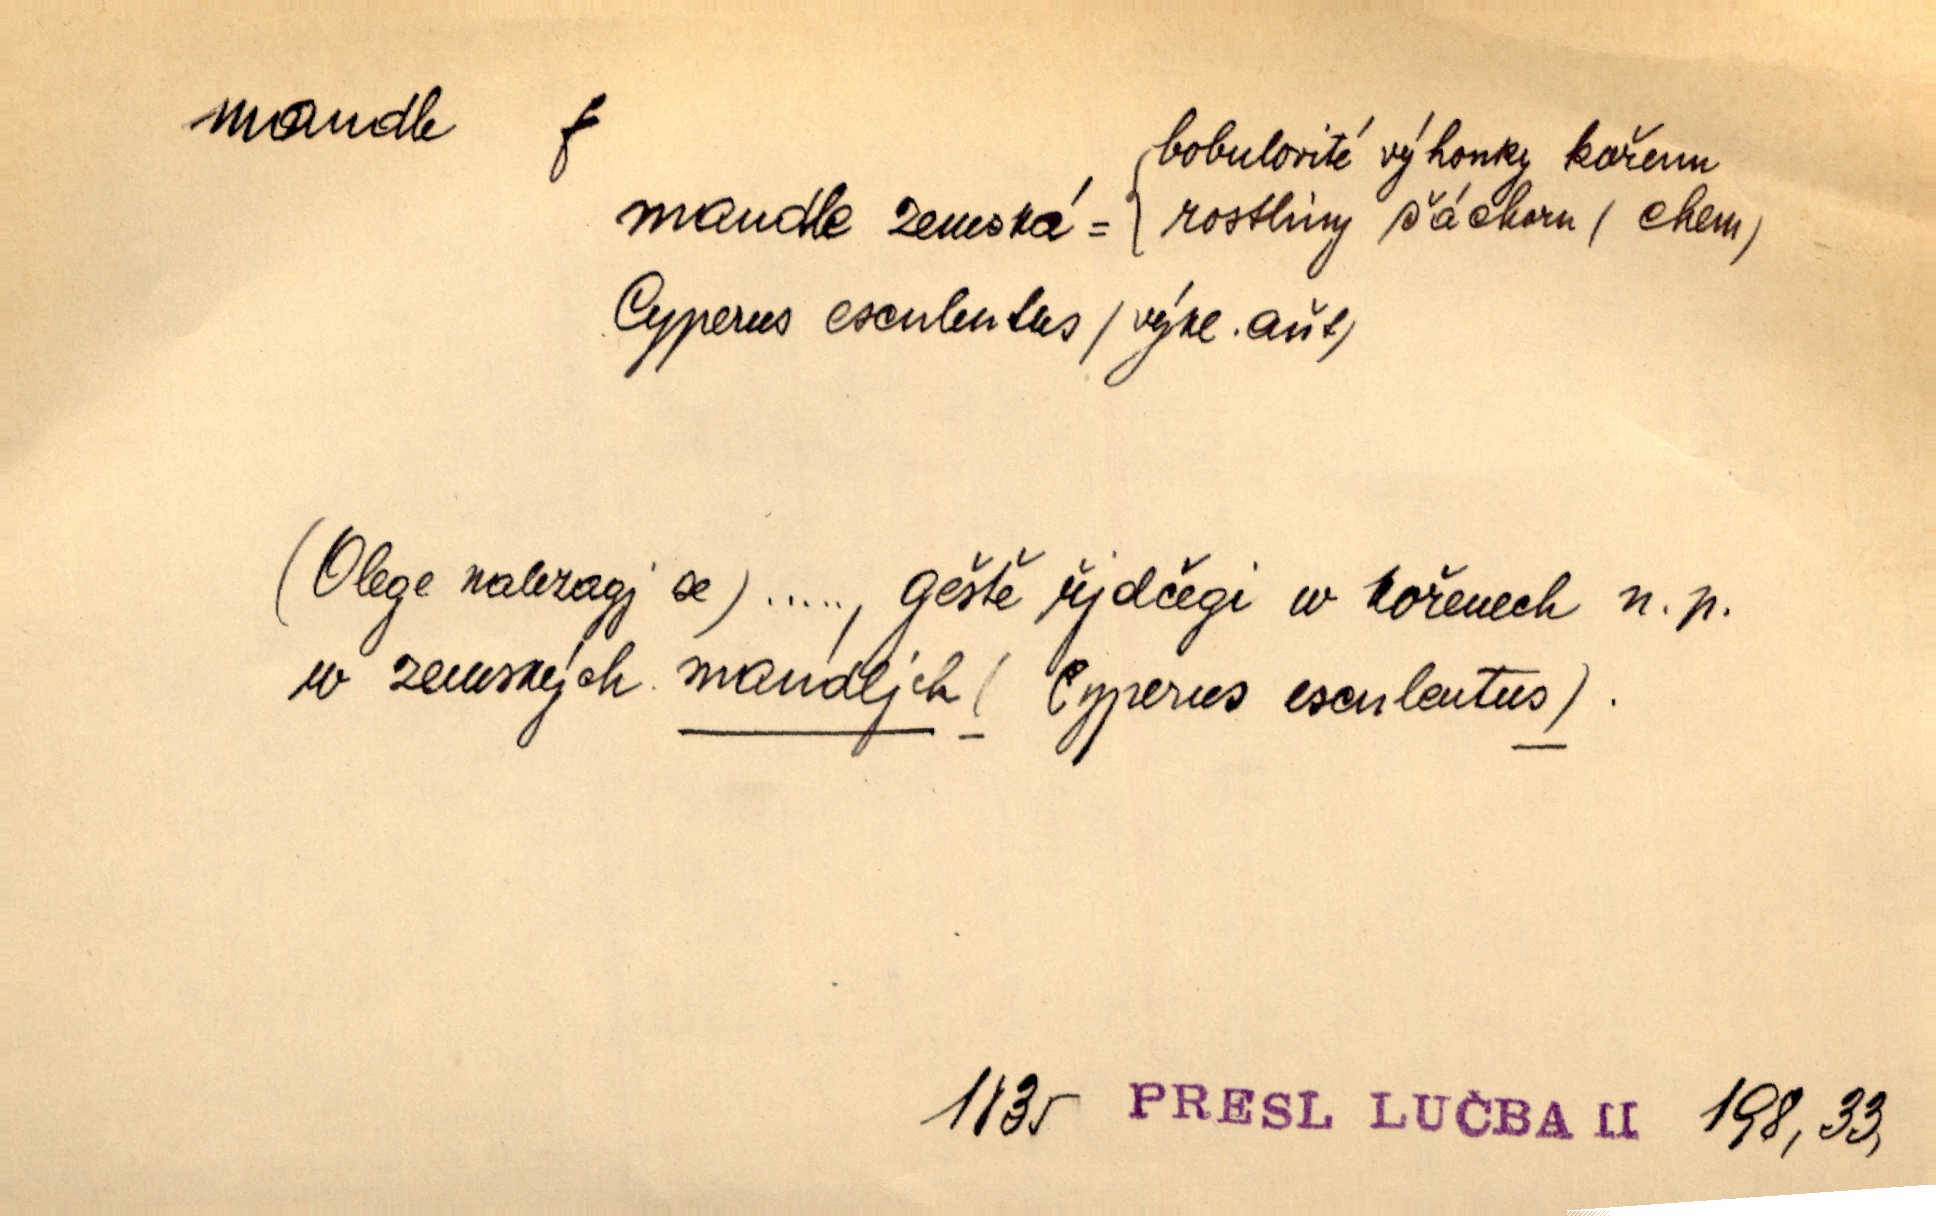 mandle f
bobulovité výhonky kořenu
mandle zemská = { rostliny šáchoru ( chem)
Cyperus esculentus ( výkl. aut)
(Olege nalezagj se) ....., geště řjdčegi w kořenech n. p.
w zemských mandljch ( Cyperus esculentus) .
1835 PRESL LUČBA II 198, 33,